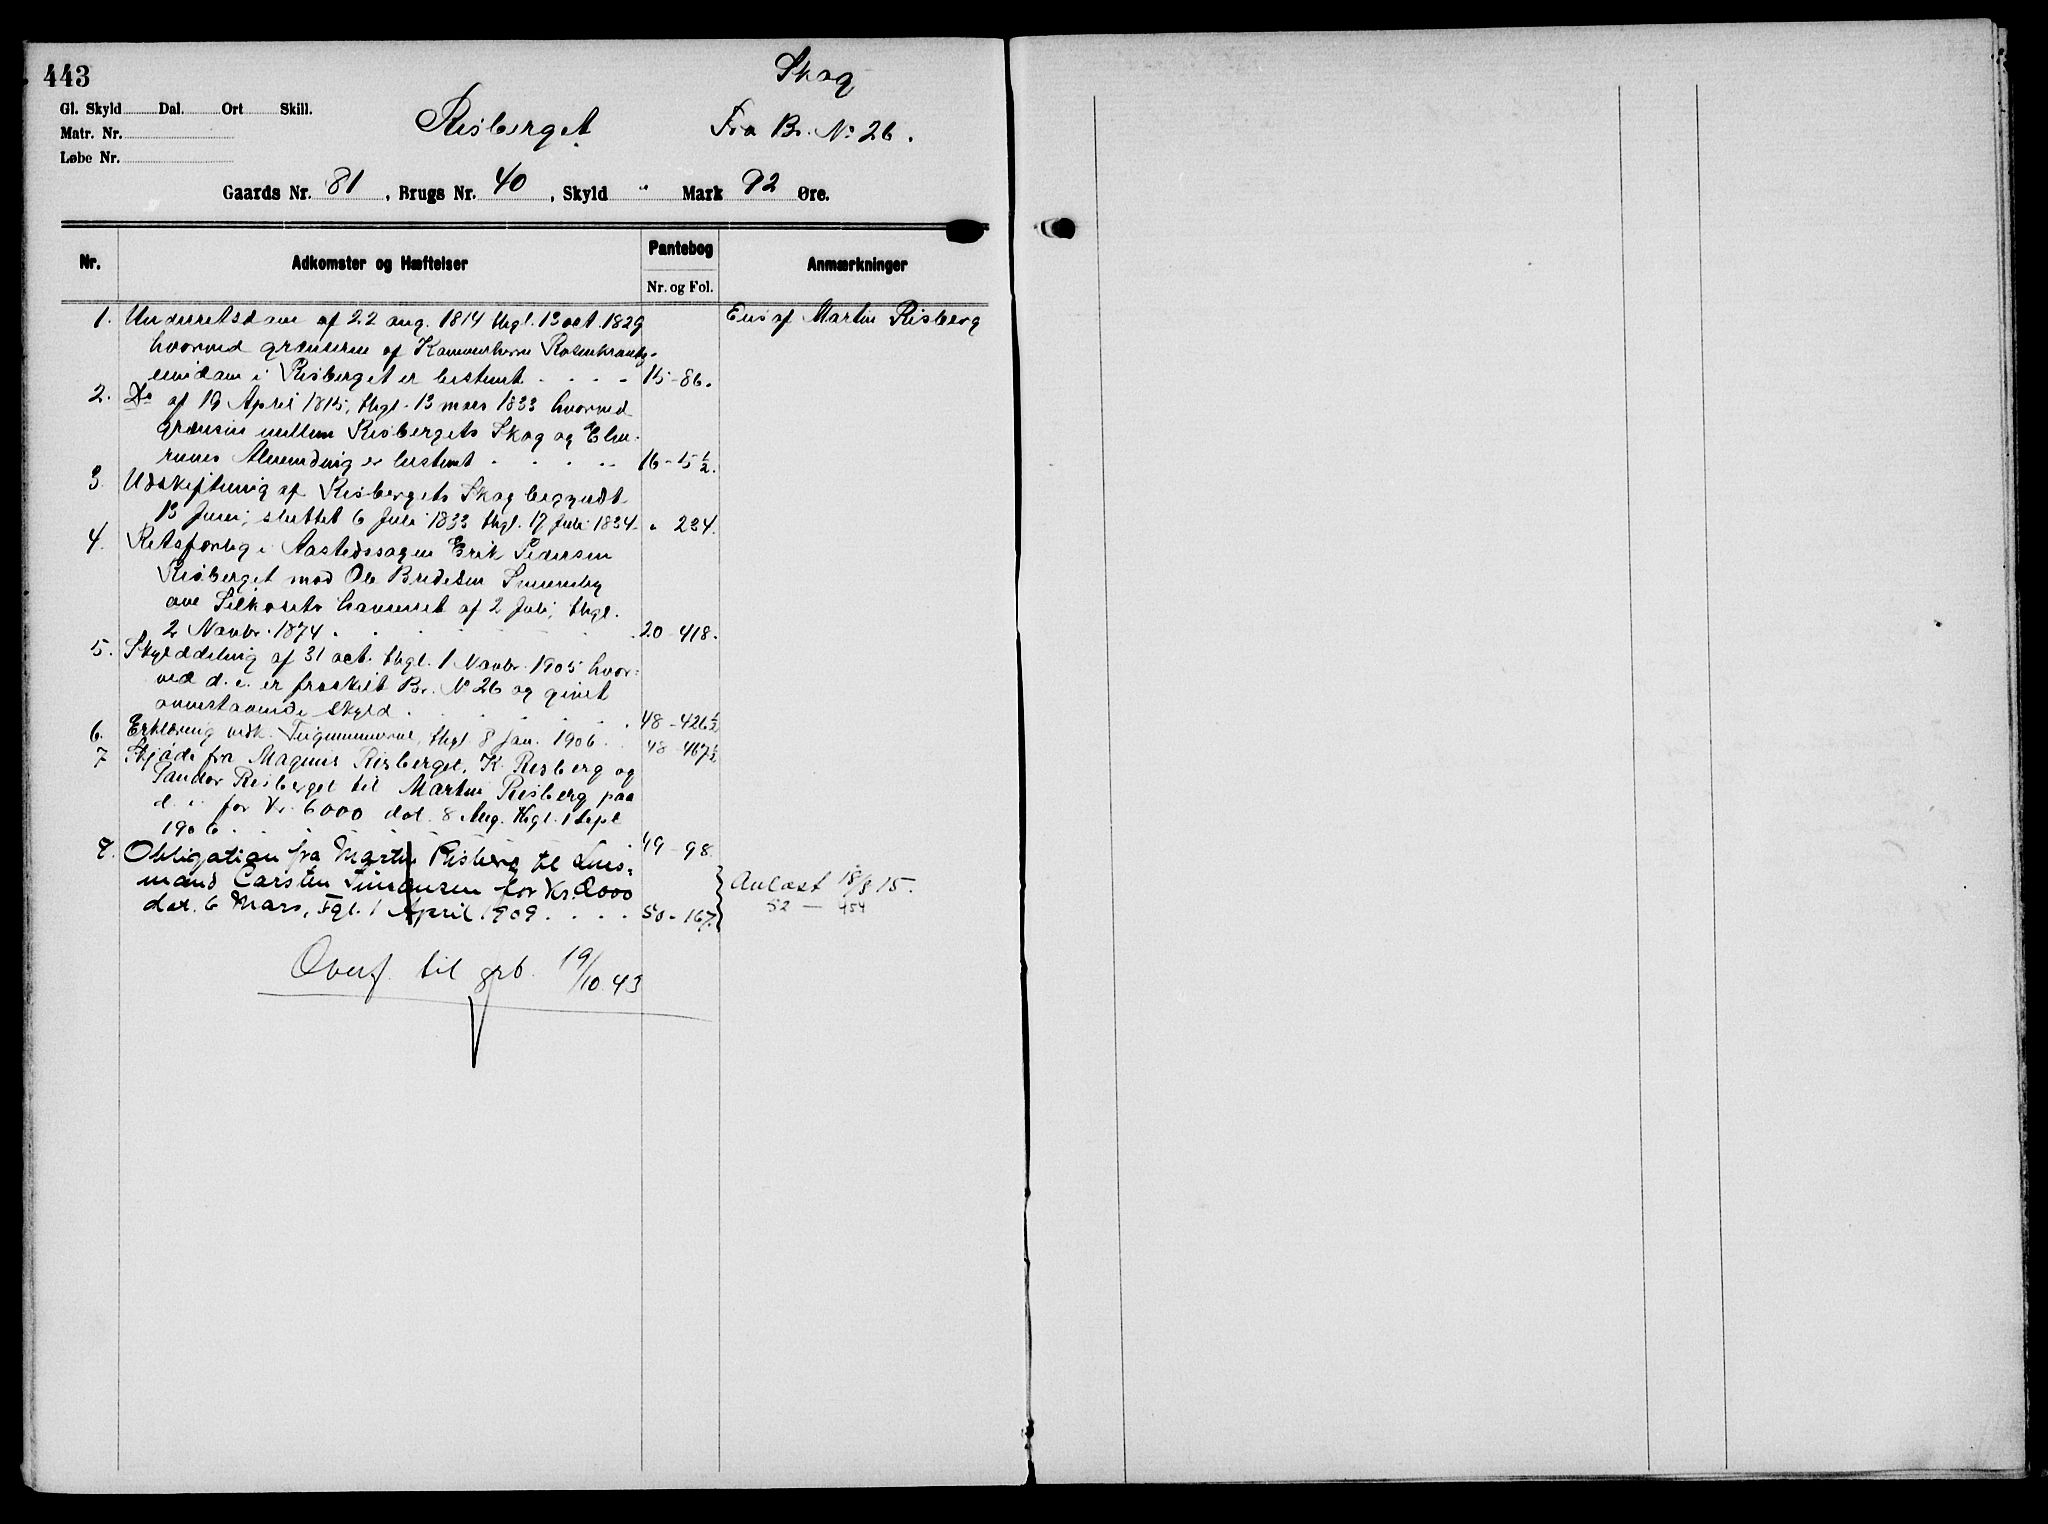 443
Skog
Gl. Skyld Dal. Ort Skill.
Risberget Fra Br. No 26.
Matr. Nr.
Løbe Nr.
Gaards Nr. 81, Brugs Nr. 40, Skyld " Mark 92 Øre.
Nr. Adkomster og Hæftelser Pantebog Anmærkninger
Nr. og Fol.
1. Underretsdom af 22 aug. 1814 thgl. 13 oct. 1829 Eies af Martin Risberg
hvorved grændserne af Kammerherre Rosenkrantz
eiendom i Risberget er bestemt . . . . 15-86.
2. Do af 19 April 1815, thgl. 13 mars 1833 hvorved
grænsen mellem Risbergets Skog og Elve-
rums Almending er bestemt . . . . . 16-5½.
3. Udskiftning af Risbergets Skog begyndt
13 Juni, sluttet 6 Juli 1833 thgl. 17 Juli 1834. " 234.
4. Retsforlig i Aastedssagen Erik Pedersen
Risberget mod Ole Bredesen
ove havneret af 2 Juli, thgl.
2 Novbr. 1874 . . . . . . 20-418.
5. Skylddeling af 31 oct. thgl. 1 Novbr. 1905 hvor-
ved d. e. er fraskilt Br. No 26 og givet
ovenstaaende skyld . . . . . . 48-426½
6. Erklæring vedk. thgl 8 Jan. 1906 . . 48-467½
7 Skjøde fra Magnus Risberget, K. Risberg og
Sandor Risberget til Martin Risberg paa
d. e. for Kr. 6000 dat. 8 Aug. thgl. 1 Sept
1906 . . . . . . 49-98.
8. Obligation fra Martin Risberg til Lens-
mand Carsten Simensen for Kr. 2000
dat. 6 Mars, tgl. 1 April 1909 . . . . 50-167. Avlæst 18/8 15.
52 — 454
Overf. til grb. 19/10 43